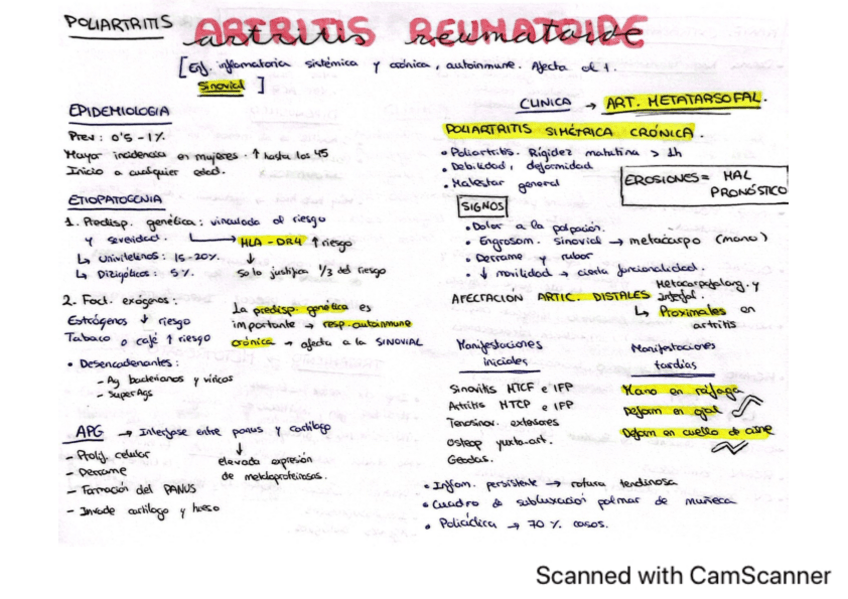 POLIARTRITIS
ARTRITIS REUMATOIDE
artritis reumatoide
[Enf. inflamatoria sistémica y crónica, autoinmune. Afecta al t.
Sinovial ]
EPIDEMIOLOGIA
Prev: 0'5 - 1%
Mayor incidencia en mujeres. ↑ hasta los 45
Inicio a cualquier edad.
ETIOPATOGENIA
1. Predisp. genética: vinculada al riesgo
y severidad. → HLA - DR4 ↑ riesgo
↳ Univitelinos: 15-20%
↳ Dizigóticos: 5%
↓
Solo justifica 1/3 del riesgo
2. Fact. exógenos:
Estrógenos ↓ riesgo
Tabaco o café ↑ riesgo
• Desencadenantes:
- Ag bacterianos y víricos
- SuperAgs
La predisp. genética es
importante → resp. autoinmune
crónica → afecta a la SINOVIAL
APG → Interfase entre panus y cartílago
- Prolif. celular
- Derrame
- Formación del PANUS
- Invade cartílago y hueso
↓
elevada expresión
de metaloproteinasas.
CLINICA → ART. METATARSOFAL.
POLIARTRITIS SIMÉTRICA CRÓNICA.
• Poliartritis. Rigidez matutina > 1h
• Debilidad, deformidad
• Malestar general
EROSIONES = MAL
PRONÓSTICO
SIGNOS
• Dolor a la palpación.
• Engrosam. sinovial → metacarpo (mano)
• Derrame y rubor
• ↓ movilidad → cierta funcionalidad.
AFECTACION ARTIC. DISTALES
Metacarpofalang. y
interfal.
↳ Proximales en
artritis
Manifestaciones
iniciales
Sinovitis MTCF e IFP
Artritis MTCP e IFP
Tenosinov. extensores
osteop yuxta-art.
Geodas.
Manifestaciones
tardías
Mano en ráfaga
Deform en ojal
Deform en cuello de cisne
• Inflam. persistente → rotura tendinosa
• Cuadro de subluxació palmar de muñeca
• Policíclica → 70 % casos.
Scanned with CamScanner